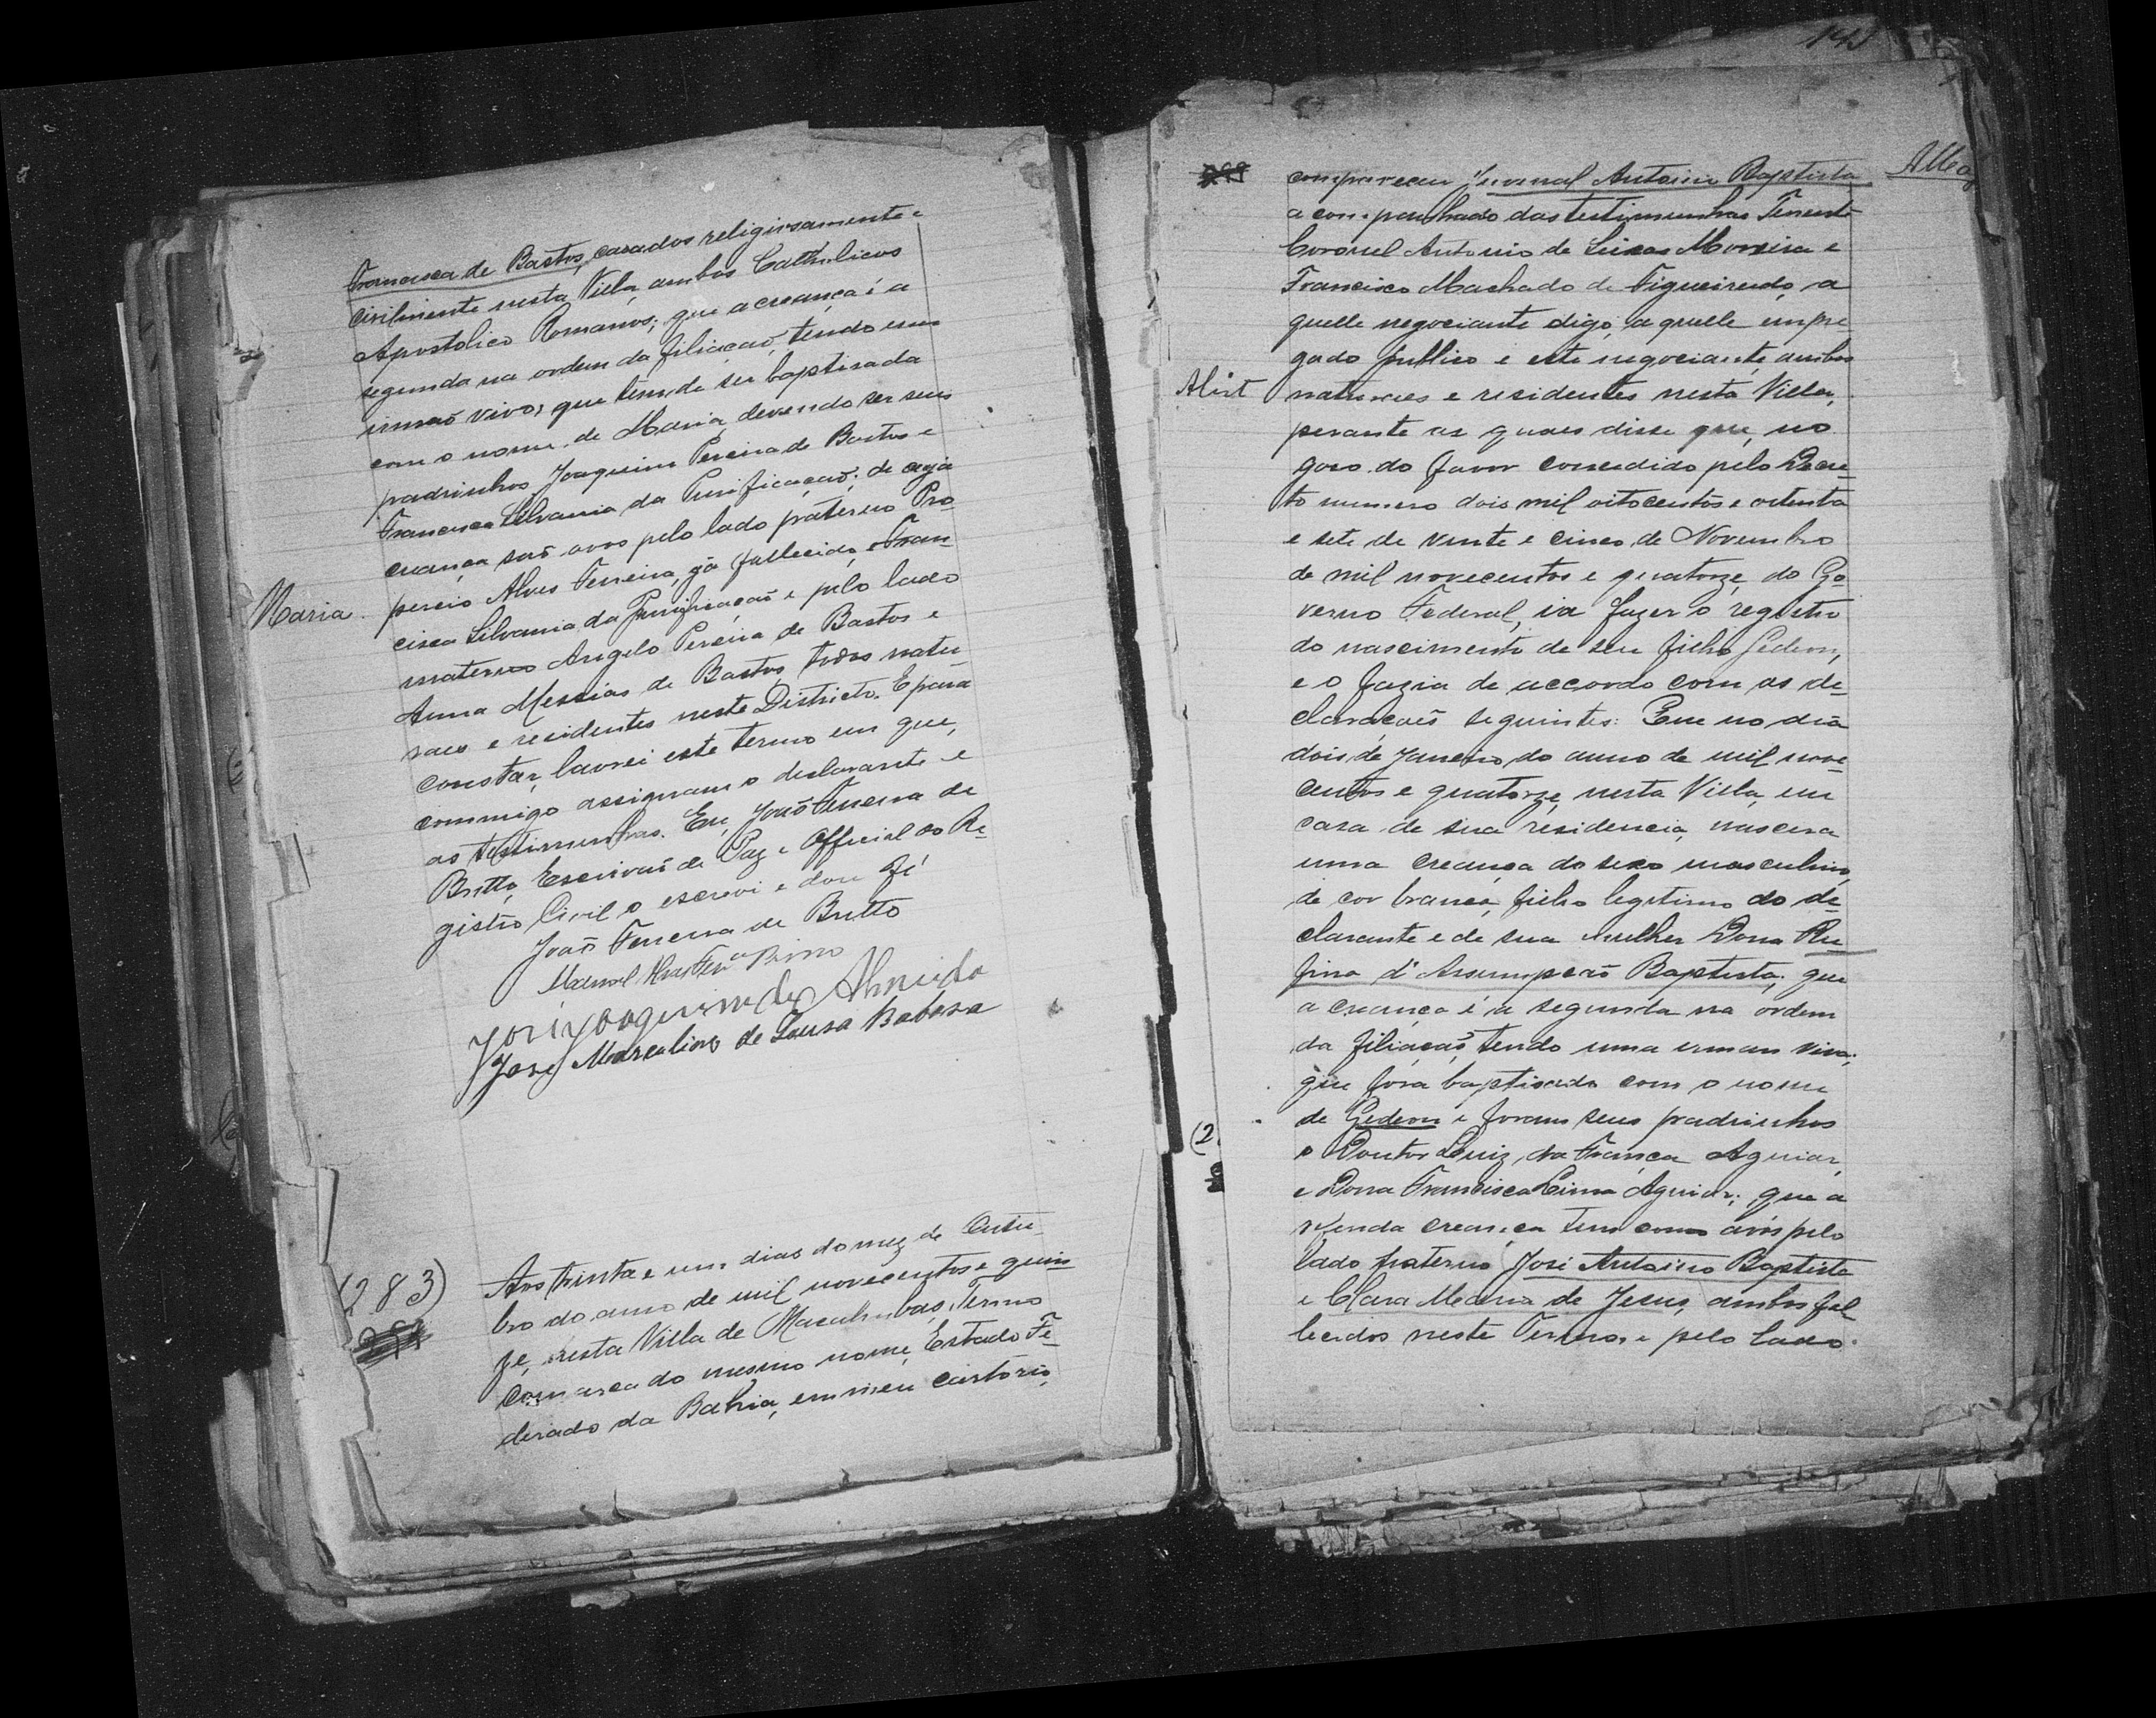 Francisca de Bastos, casados religiosamente e
civilmente nesta Villa, ambos Catholicos
Apostolico Romanos; que a creança é a
segunda na ordem da filiação, tendo um
irmaõ vivo; que tem de ser baptisada
com o nome de Maria, devendo ser seus
padrinhos Joaquim Pereira de Bastos e
Francisca Silvania da Purificaçaõ; de cuja
creança saõ avos pelo lado paterno Pro
percio Alves Ferreira, já fallecido, e Fran
cisca Silvania da Purificaçaõ e pelo lado
Maria
materno Angelo Pereira de Bastos e
Anna Messias de Bastos, todos natu
raes e residentes neste Districto. E para
constar, lavrei este termo em que,
commigo assignam o declarante e
as testimunhas. Eu, João Ferreira de
Britto, Escrivaõ de Paz e Official do Re
gistro Civil o escrevi e dou fé
João Ferreira de Britto
Manoel Alves Ferª Primo
José Joaquim de Almeida
José Marcalino de Sousa Babosa
(283)
Aos trinta e um dias do mez de Outu
bro do anno de mil novecentos e quin
ze, nesta Villa de Macahubas, Termo
Comarca do mesmo nome, Estado Fe
derado da Bahia, em meu cartorio,
compareceu Juvenal Antonio Baptista
acompanhado das testimunhas Tenente
Coronel Antonio de Moreira e
Francisco Machado de Figueiredo, a
quelle negociante digo, aquelle empre
gado publico e este negociante, ambos
Alist
naturaes e residentes nesta Villa,
perante as quaes disse que, no
goso do favor concedido pelo Decre
to numero dois mil oitocentos e oitenta
e sete de vinte e cinco de Novembro
de mil novecentos e quatorze, do Go
verno Federal, ia fazer o registro
do nascimento de seu filho Gedeon,
e o fazia de accordo com as de
claraçoẽs seguintes: Que no dia
dois de Janeiro do anno de mil nove
centos e quatorze, nesta Villa, em
casa de sua residencia, nascera
uma creança do sexo masculino,
de cor branca, filho legitimo do de
clarante e de sua mulher Dona Ru
fina d'Assumpcaõ Baptista; que
a creança é a segunda na ordem
da filiaçaõ, tendo uma irman viva;
que fora baptisado com o nome
de Gedeon e foram seus padrinhos
(2
o Doutor Luiz da França Aguiar,
e Dona Francisca Lima Aguiar; que a
creança tem como avós pelo
lado paterno José Antonio Baptista
e Clara Maria de Jesus, ambos fal
lecidos neste Termo, e pelo lado